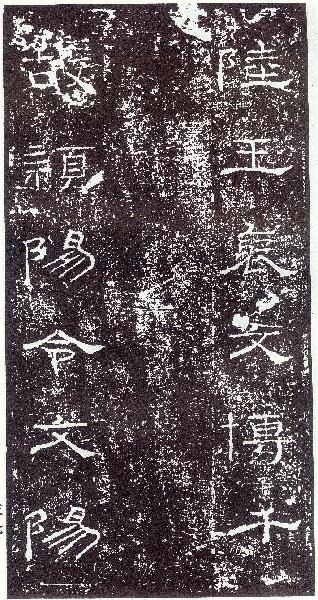 陸王褒文博千
故潁陽令文陽